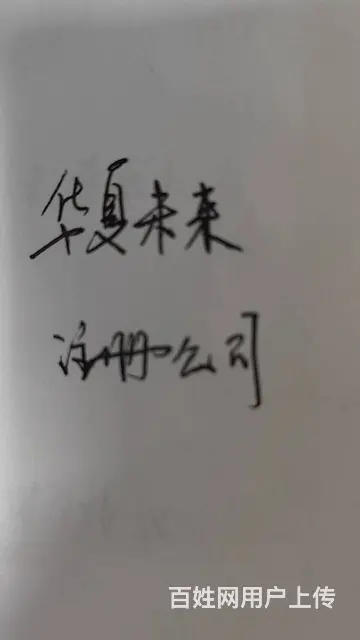 华夏未来
注册公司
百姓网用户上传